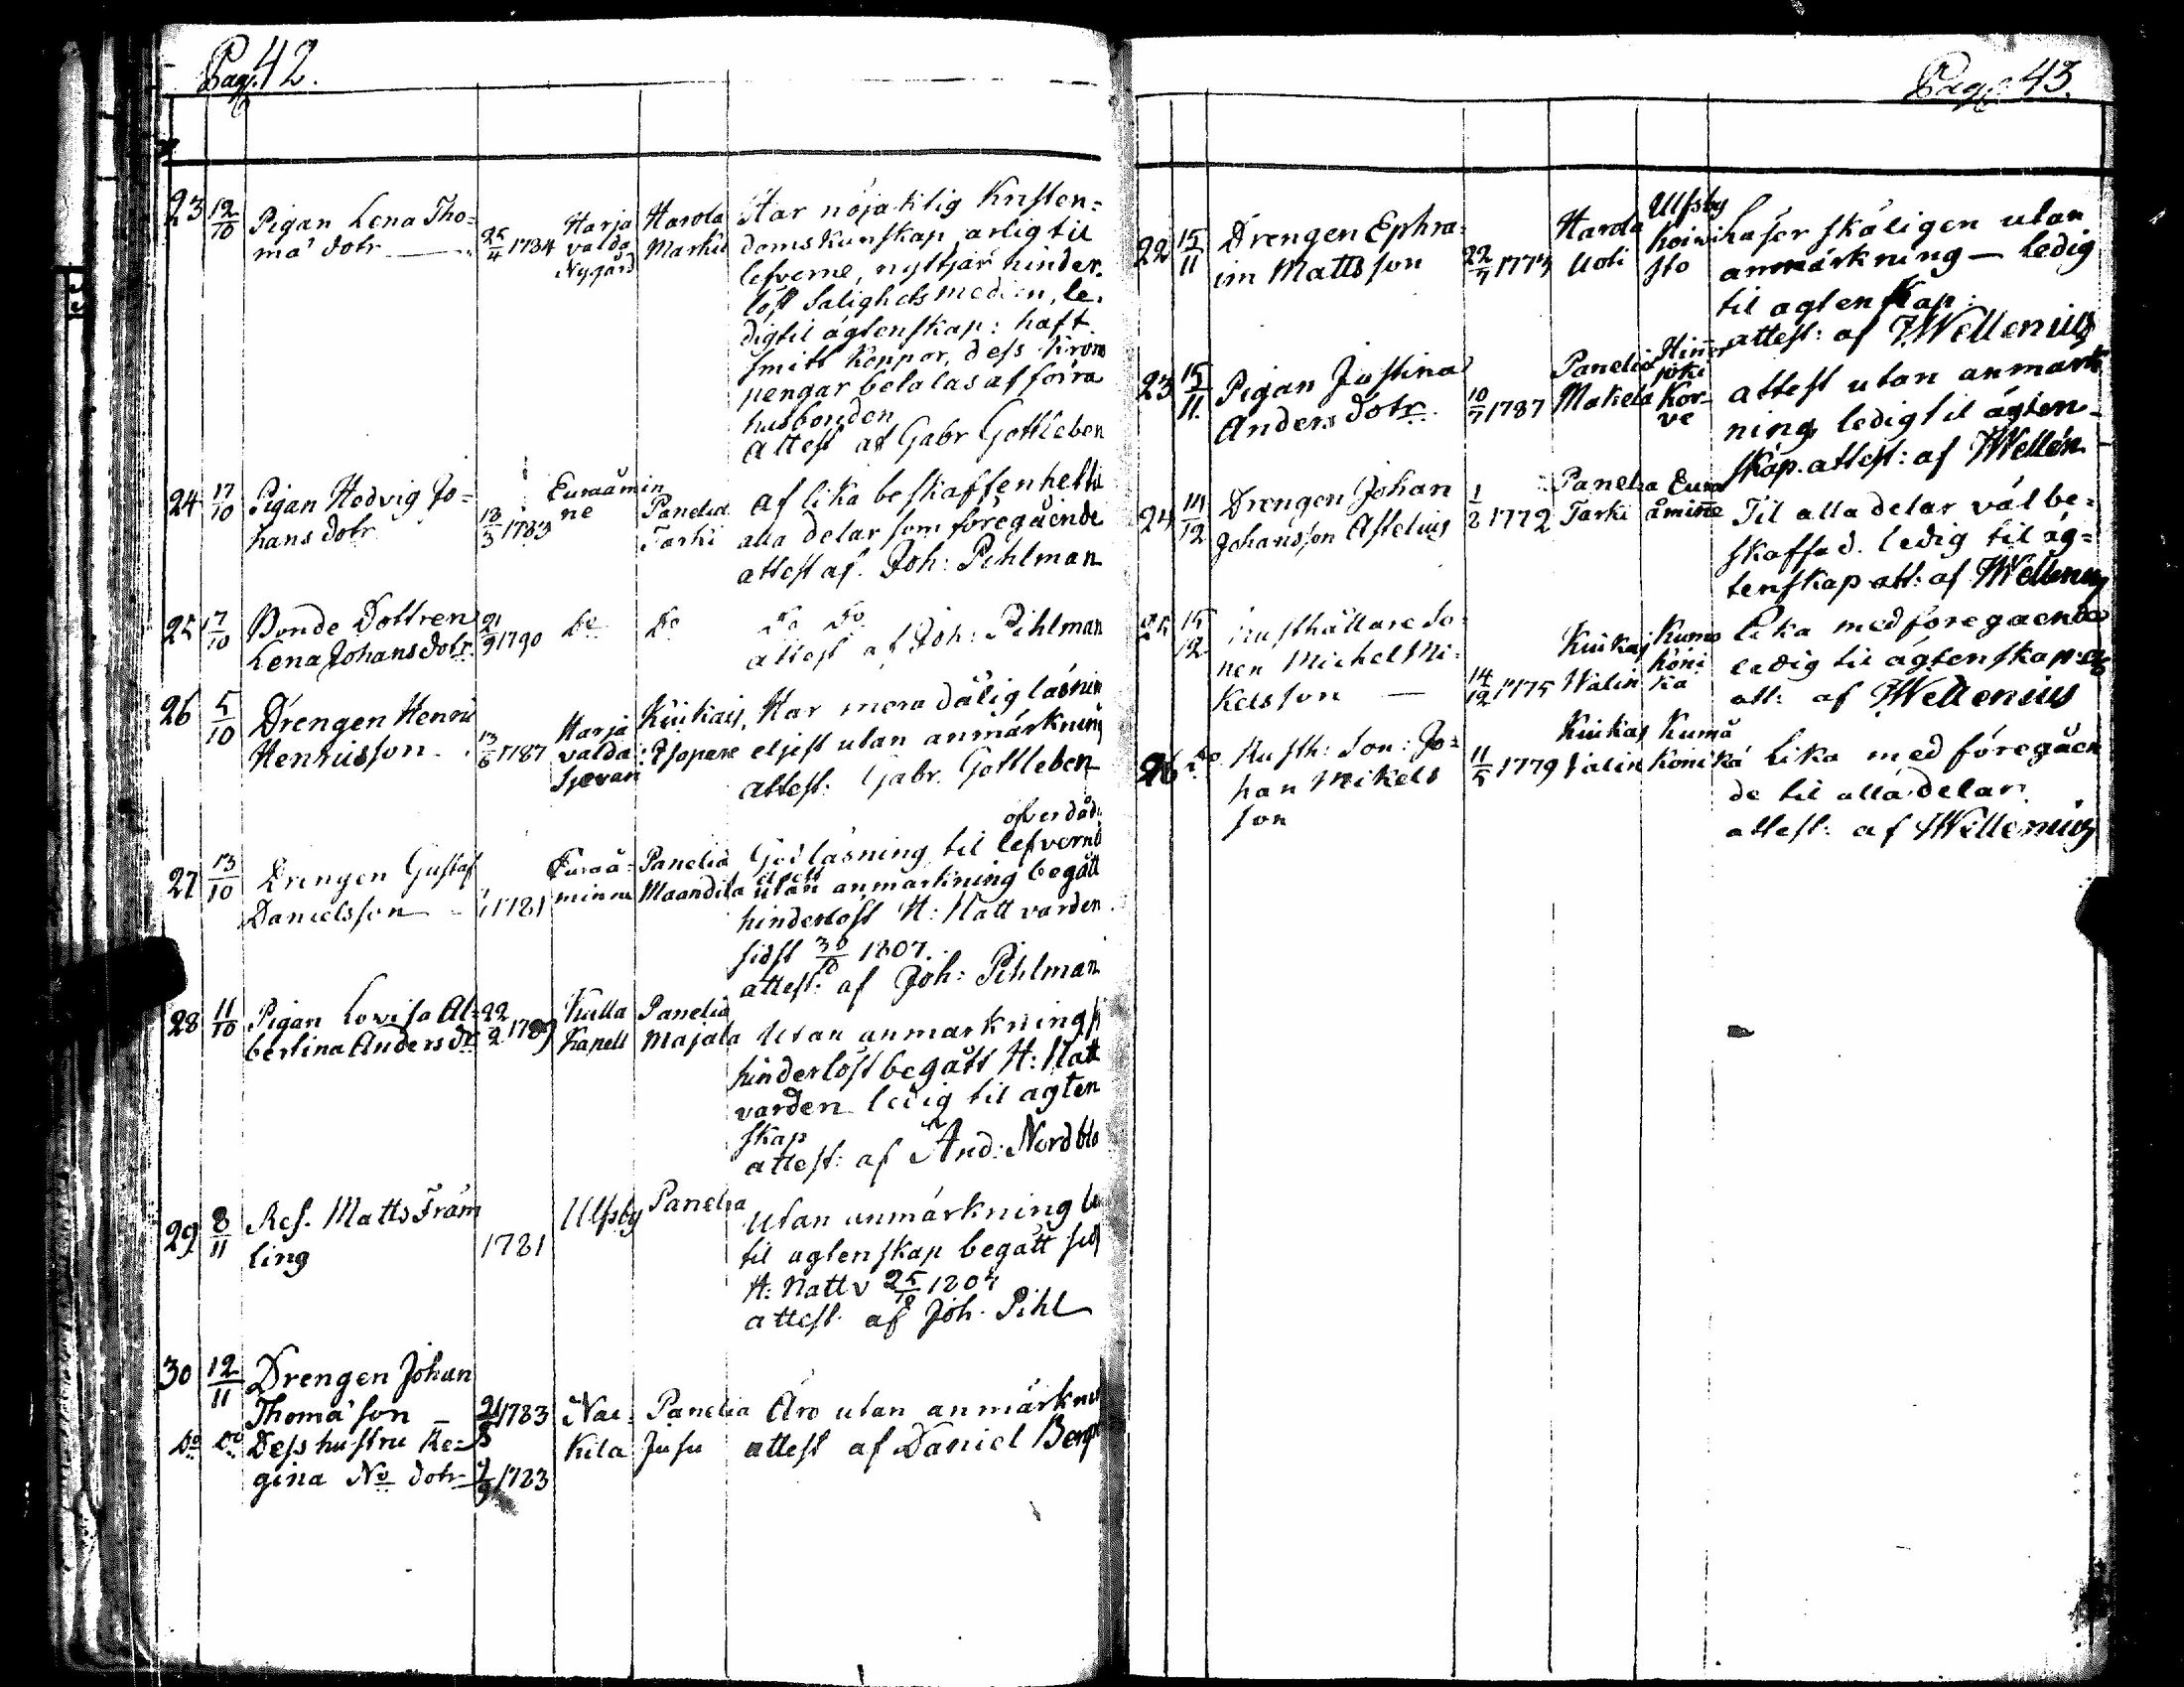 Pag. 42.
23 12/10 Pigan Lena Tho=
ma dotr 25/4 1784 Harja valda Nygård Harola Markü Har nöjaktig Kristen=
doms kunskap ärlig til
lefverne, nyttjar hinder
löst Salighetsmedlen, le
dig til ägtenskap: haft
smitt Koppor, dess Krono
pengar betalas af förra
husbonden
Attest af Gabr Gottleben
24 17/10 Pigan Hedvig Jo=
hans dotr 18/3 1783 Euraåmin
ne Panelia Tarki Af lika beskaffenhet til
alla delar som föregående
attest af Joh: Pihlman
25 17/10 Bonde Dottren
Lena Johans dotr 21/9 1790 Do Do Do Do
attest af Joh: Pihlman
26 5/10 Drengen Henric
Henricsson 13/6 1787 Harja valda Sjovan Kiukais, Itsopare Har mera dålig läsnin
eljest utan anmärkning
attest: Gabr. Gottleben
27 13/10 Drengen Gustaf
Danielsson 1781 Euraå=
minne Panelia Maandila ofverdåd
God läsning til lefverne
eljest utan anmärkning begått
hinderlöst H: Nattvarden
sidst 30/10 1807.
attest: af Joh: Pihlman
28 11/10 Pigan Lovisa Al=
bertina Anders dr 22/2 1789 Kulla Kapell Panelia Majala Utan anmärkning
hinderlöst begått H: Natt
varden ledig til ägten
skap
attest: af And: Nordblo
29 8/11 Ref. Matts Främ
ling 1781 Ulfsby Panelia Utan anmärkning le
til ägtenskap begått sid
H: Nattv 25/10 1807
attest af Joh. Pihl
30 12/11 Drengen Johan
Thoma son 21/8 1783 Nac=
kila Panelia Jusu Äro utan anmärkn
Do Do Dess hustru Re=
gina No dotr 9/9 1783 attest af Daniel Berg
Pag. 43.
22 15/11 Drengen Ephra=
im Mattsson 22/7 1774 Harola Uoti Ulfsby Koivi
sto läser skäligen utan
anmärkning — ledig
til ägtenskap:
attest: af JWellenius
23 15/11 Pigan Justina
Anders dotr 10/7 1787 Panelia Makela Hinner
joki Kor-
ve attest utan anmärk
ning ledig til ägten-
skap. attest: af JWellen
24 14/12 Drengen Johan
Johansson Astelius 1/2 1772 Panelia Tarki Eura
åminne Til alla delar väl be=
skaffad. ledig til äg=
tenskap att: af JWellenius
25 15/12 Rusthållare So
nen Michel Mi=
kelsson — 14/12 1775 Kiukas Walin Kumo
Köni
ka Lika med föregaende
ledig til ägtenskap
att: af JWellenius
26 Do Rusth: Son: Jo=
han Mikels
son 11/5 1779 Kiukas Valin Kumå
Könika Lika med föregåen
de til alla delar
attest: af JWellenius